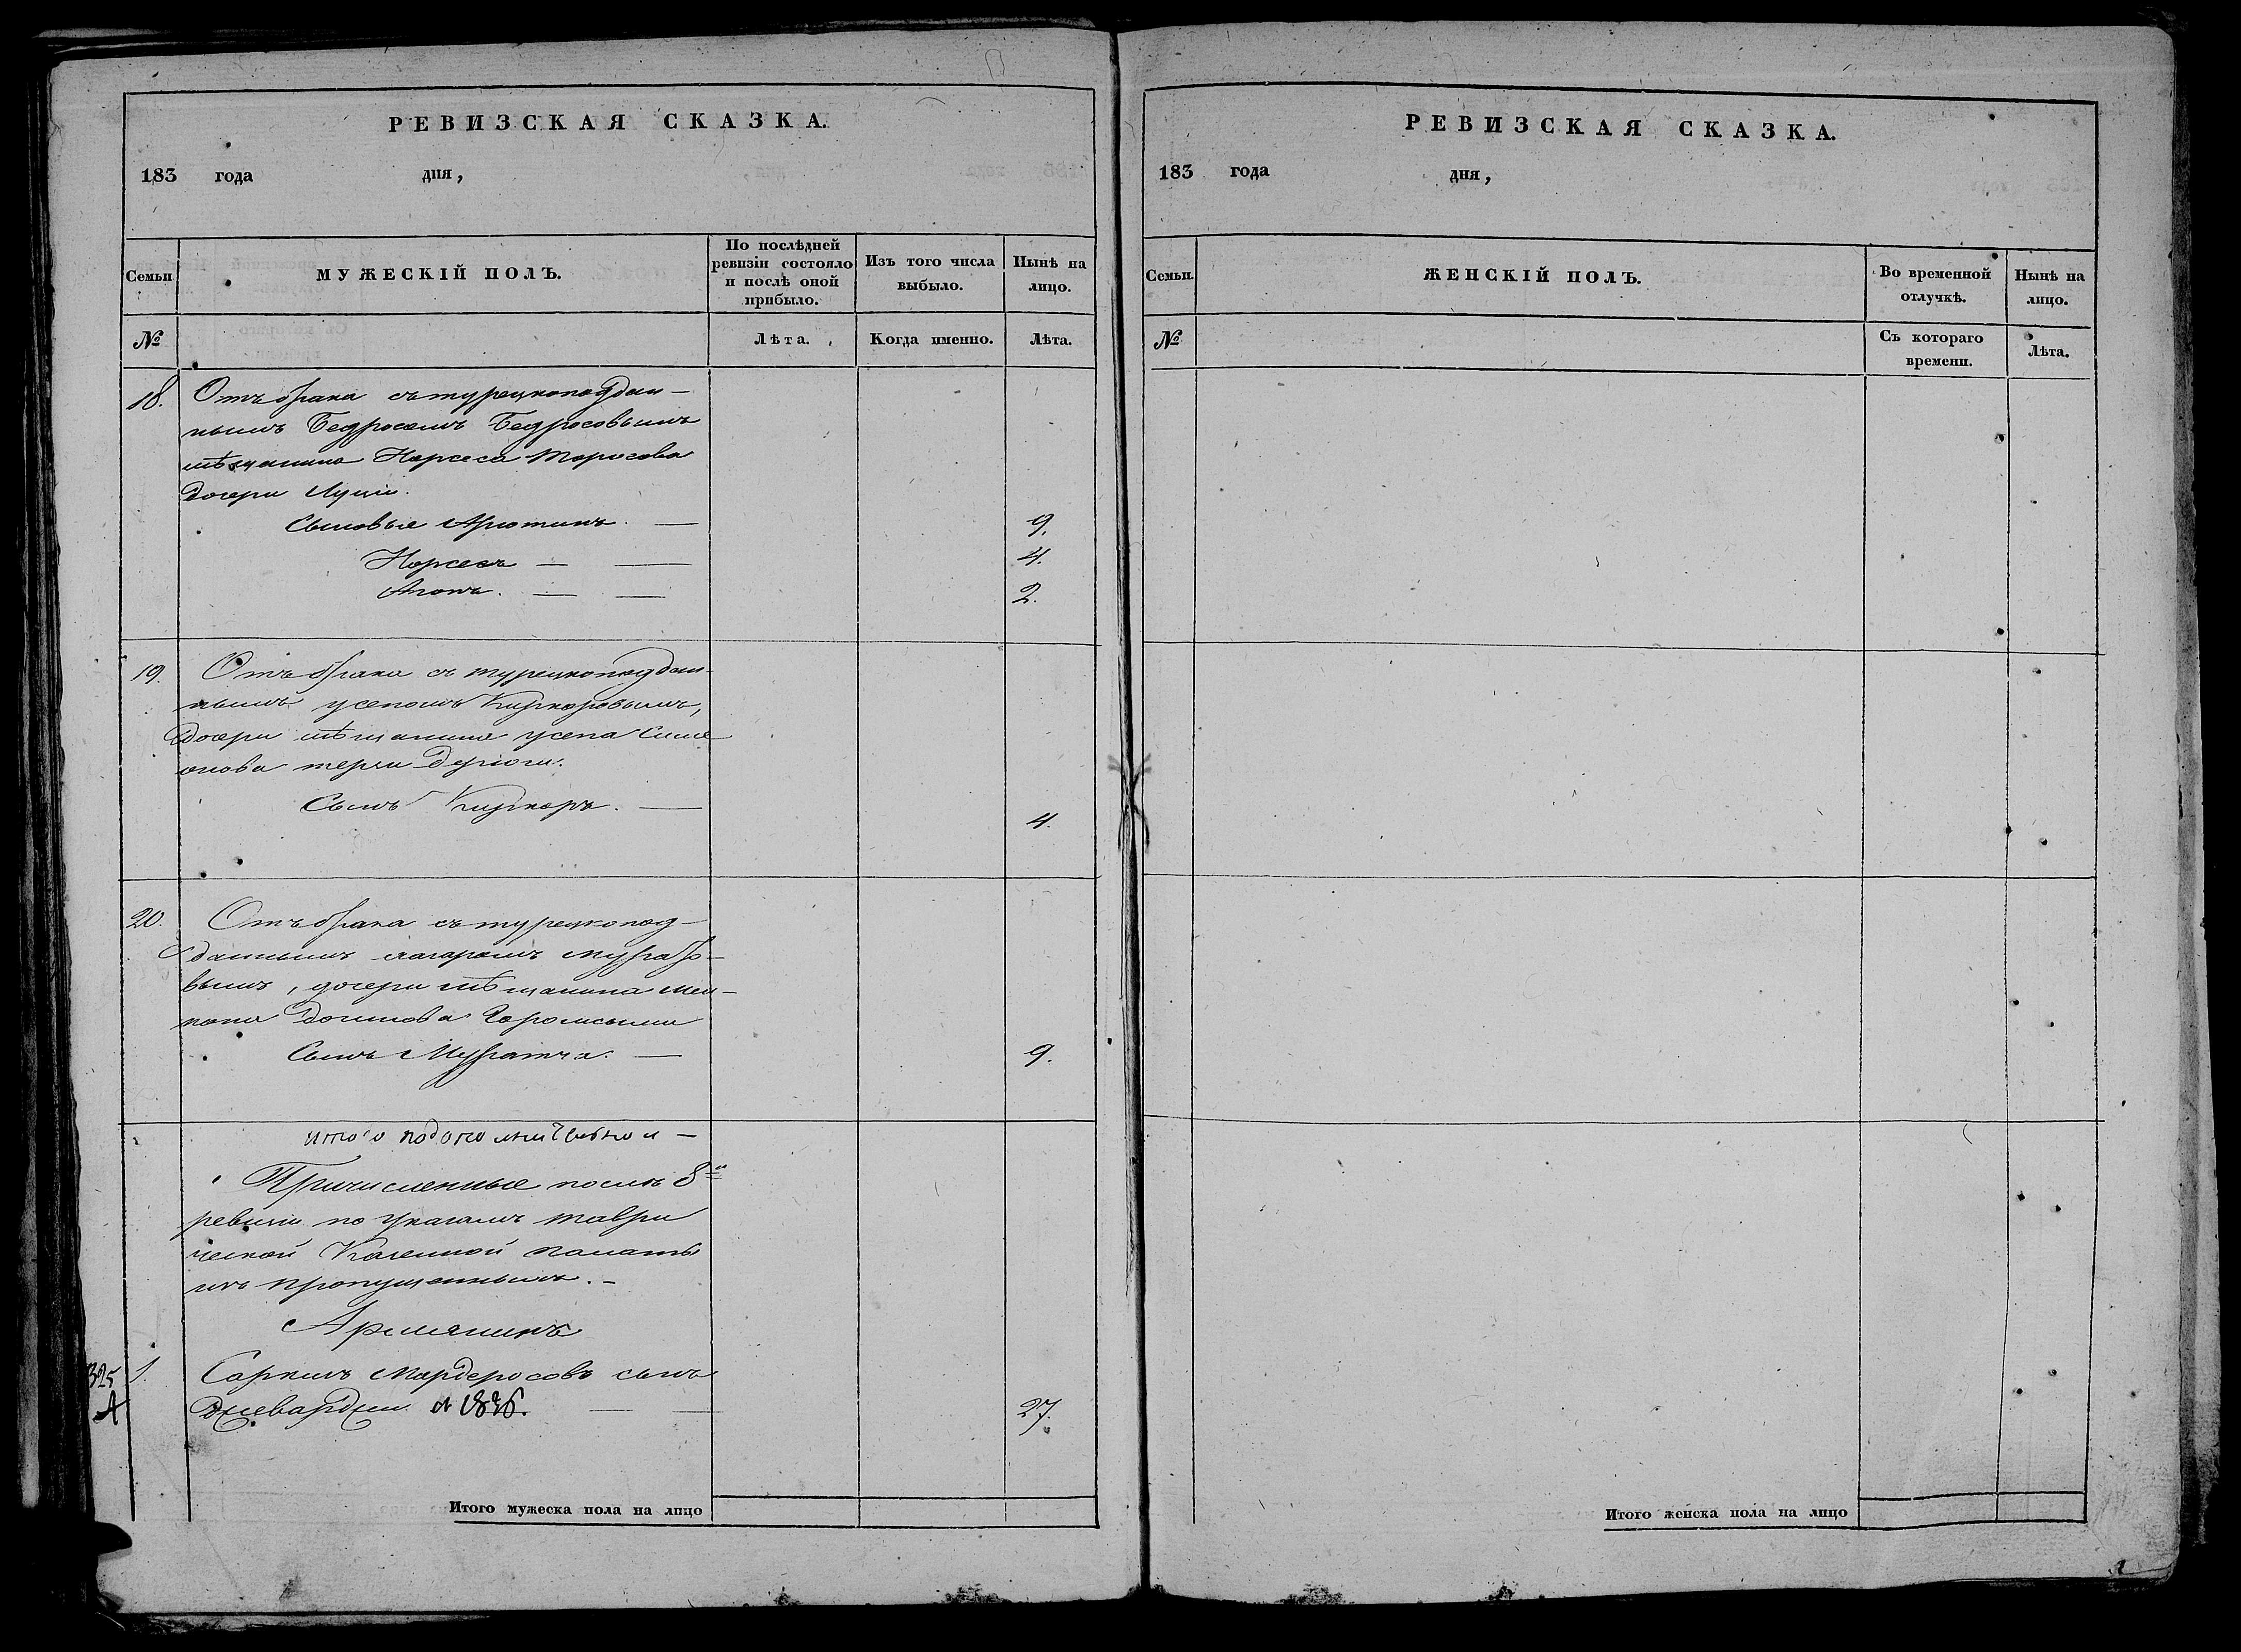 РЕВИЗСКАЯ СКАЗКА.
183 года дня,
Семьи МУЖЕСКІЙ ПОЛЪ. По послѣдней ревизіи состояло и послѣ оной прибыло. Изъ того числа выбыло. Нынѣ на лицо.
№ Лѣта. Когда именно. Лѣта.
18. Отъ брака съ турецкоподдан-
нымъ Бедросомъ Бедросовымъ
мѣщанина Нерсеса Торосова
дочери Луции.
Сыновья Арютинъ. — 9.
Нерсесъ — — 4.
Агопъ. — — 2.
19. Отъ брака съ турецкоподдан-
нымъ Усепомъ Киркоровымъ,
дочери мѣщанина Усепа Симе
онова
Сынъ Киркоръ. — 4.
20. Отъ брака съ турецкопод-
даннымъ Мурато-
вымъ, дочери мѣщанина Мел-
кона
Сынъ Муратча. — 9.
итого
Причисленные послѣ 8й
ревизіи по указамъ Таври
ческой Казенной палаты
изъ пропущенныхъ. –
Армянинъ
325 1. Саркизъ Мардеросовъ сынъ
А 27.
Итого мужеска пола на лицо
РЕВИЗСКАЯ СКАЗКА.
183 года дня,
Семьи. ЖЕНСКІЙ ПОЛЪ. Во временной отлучкѣ. Нынѣ на лицо.
№ Съ котораго времени. Лѣта.
Итого женска пола на лицо